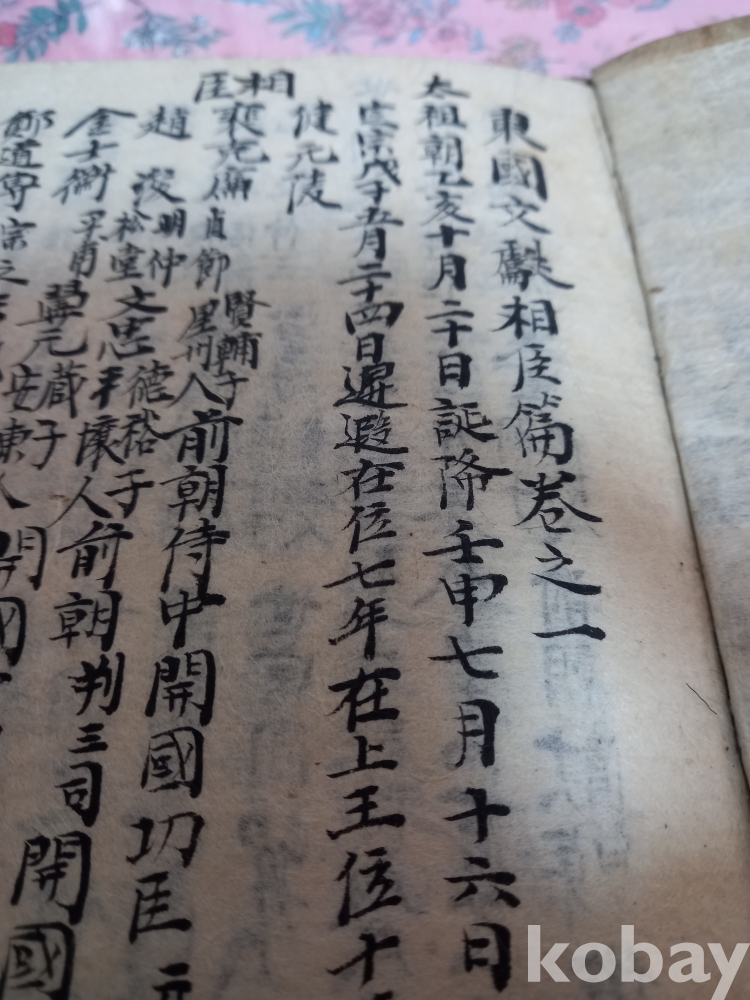 東國文獻相臣篇卷之一
太祖朝乙亥十月二十日誕降壬申七月十六日
宗戊子五月二十四日遐在位七年在上王位十
健元陵
相臣
裵克廉貞節賢輔子星州人前朝侍中開國功臣元
趙浚明仲松堂文忠德裕子平壤人前朝判三司開國
金士衡平甫翼元蕆子安東人開國
鄭道傳宗之
kobay